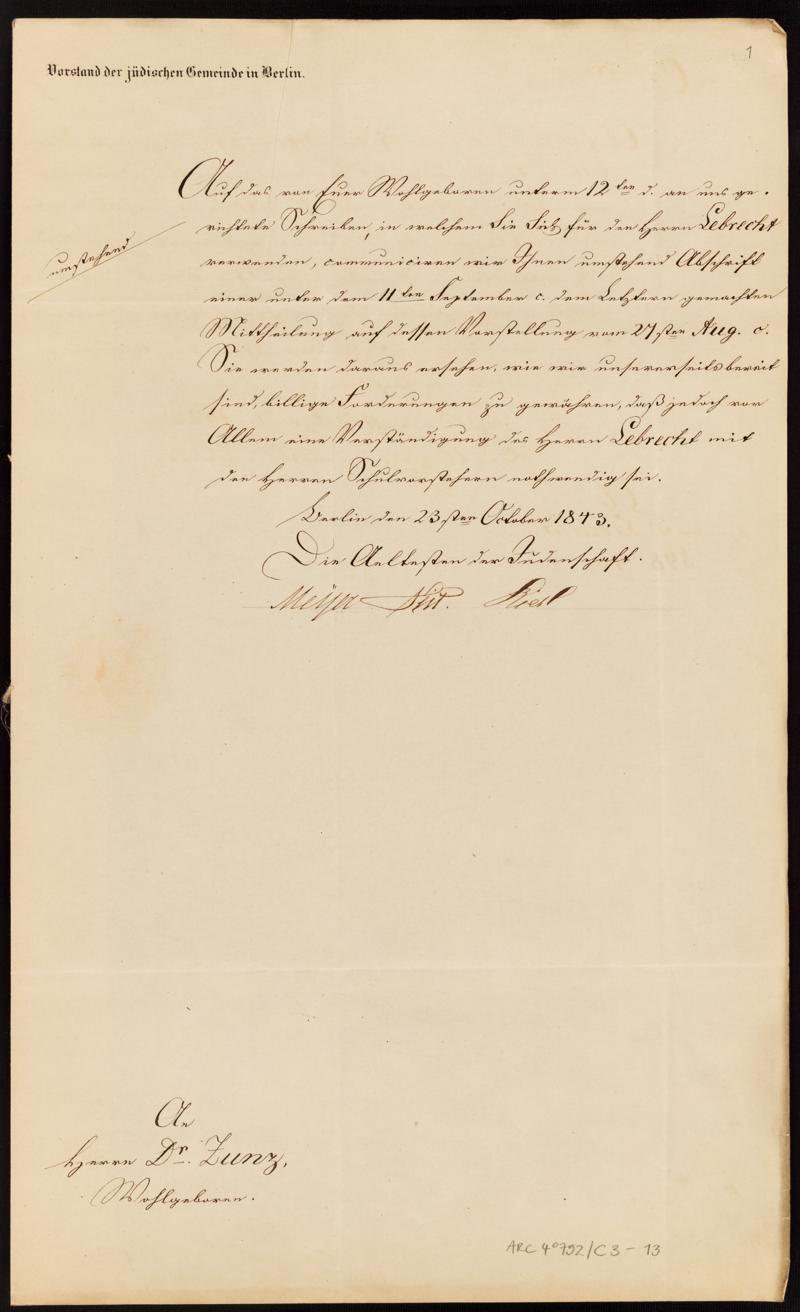 1
Vorstand der jüdischen Gemeinde in Berlin.
Auf das von Euer Wohlgeboren unterm 12ten d. an uns ge-
richtete Schreiben, in welchem Sie Sich für den Herrn Lebrecht
umstehend
verwenden, communiciren wir Ihnen umstehend Abschrift
einer unter dem 11ten September c. dem Letztern gemachten
Mittheilung auf dessen Vorstellung vom 27sten Aug. c.
Sie werden daraus ersehen, wie wir unsererseits bereit
sind, billige Forderungen zu gewähren, daß jedoch vor
Allem eine Verständigung des Herrn Lebrecht mit
den Herren Schulvorstehern nothwendig sei.
Berlin den 23sten October 1843.
Die Aeltesten der Judenschaft.
Meyer
An
Herrn Dr. Zunz,
Wohlgeboren.
ARC 4°792/C3-13